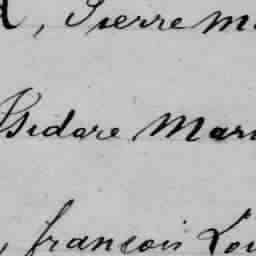 , Pierre M
Isidore Mari
, françois Lou